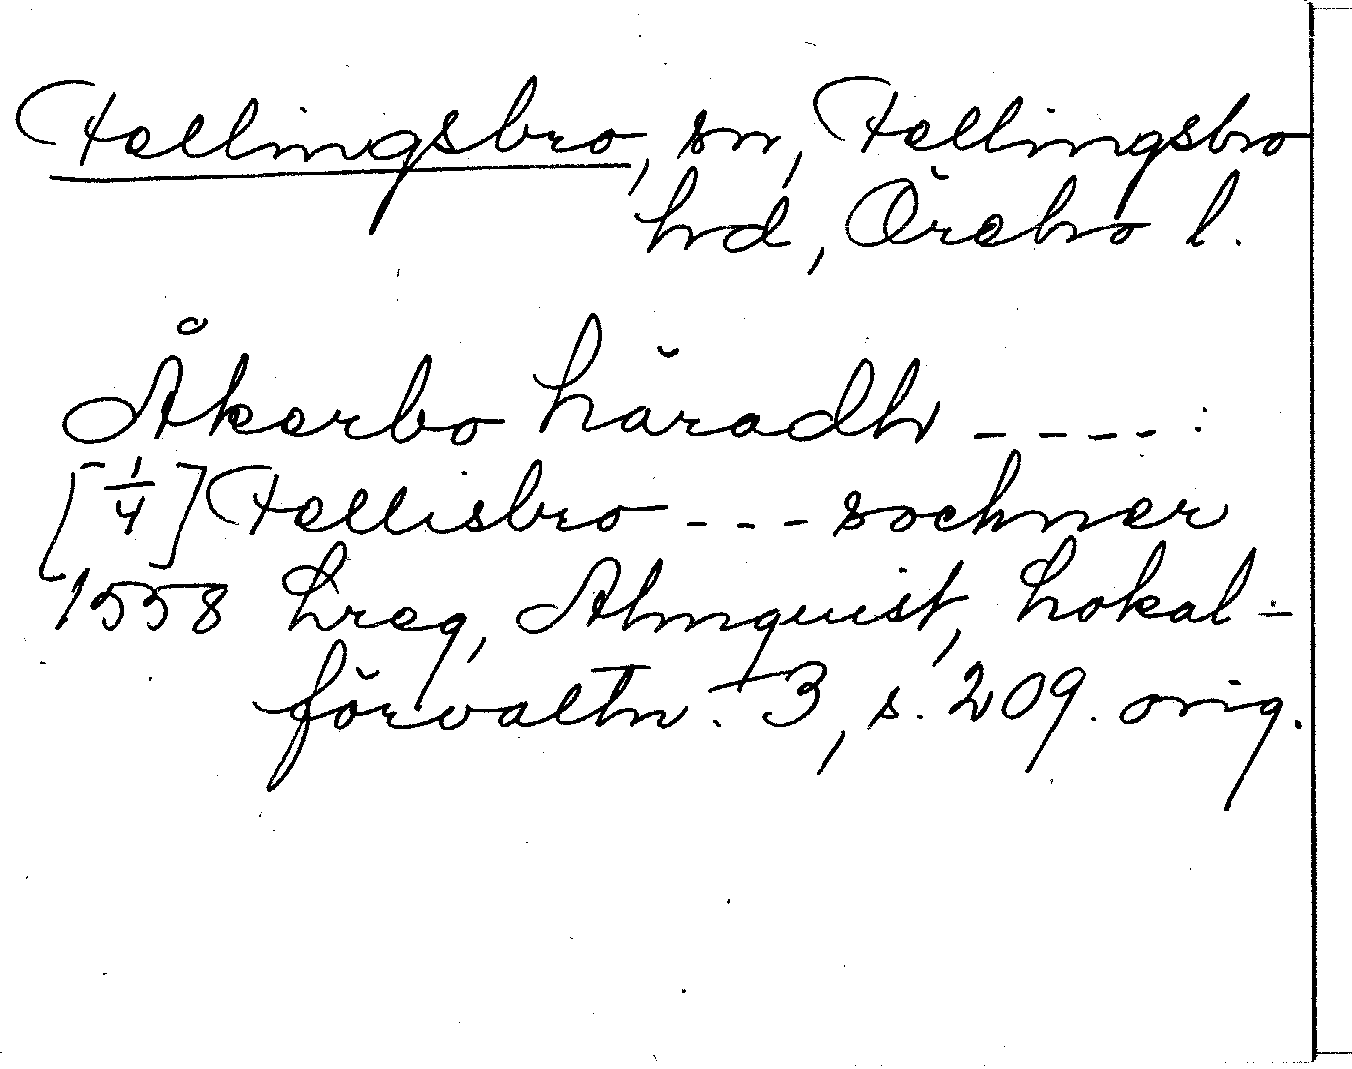 Fellingsbro, sn, Fellingsbro
hd, Örebro l.
Åkerbo häradh ----:
[1/4] Fellisbro --- sochner
1558 hreg, Almquist, Lokal-
förvaltn. 3, s. 209. orig.